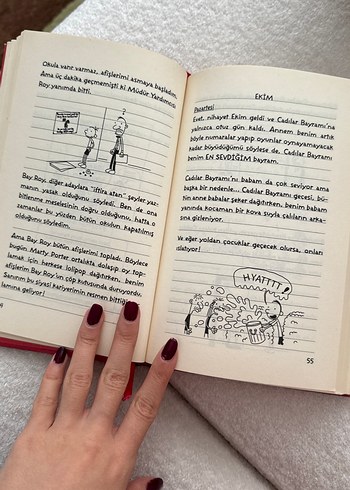 Okula varır varmaz, afişlerimi asmaya başladım.
Ama üç dakika geçmemişti ki Müdür Yardımcısı
Roy yanımda bitti.
Bay Roy, diğer adaylara "iftira atan" şeyler yaz-
manın yasak olduğunu söyledi. Ben de ona
bitlenme meselesinin doğru olduğunu, hatta o
zamanlar bu yüzden bütün okulun kapatılmış
olduğunu söyledim.
Ama Bay Roy bütün afişlerimi topladı. Böylece
bugün, Marty Porter ortalıkta dolaşıp oy top-
lamak için herkese lolipop dağıtırken, benim
afişlerim Bay Roy'un çöp kutusunda duruyordu.
Sanırım bu siyasi kariyerimin resmen bittiği
lamına geliyor!
EKİM
Pazartesi
Evet, nihayet Ekim geldi ve Cadılar Bayramı'na
yalnızca otuz gün kaldı. Annem benim artık
böyle numaralar yapıp oyunlar oynayamayacak
kadar büyüdüğümü söylese de, Cadılar Bayramı
benim EN SEVDİĞİM bayram.
Cadılar Bayramı'nı babam da çok seviyor ama
başka bir nedenle... Cadılar Bayramı gecesi, bü-
tün anne babalar şeker dağıtırken, benim babam
yanında kocaman bir kova suyla çalıların arka-
sına gizleniyor.
Ve eğer yoldan çocuklar geçecek olursa, onları
ıslatıyor!
HYATTTT!
55